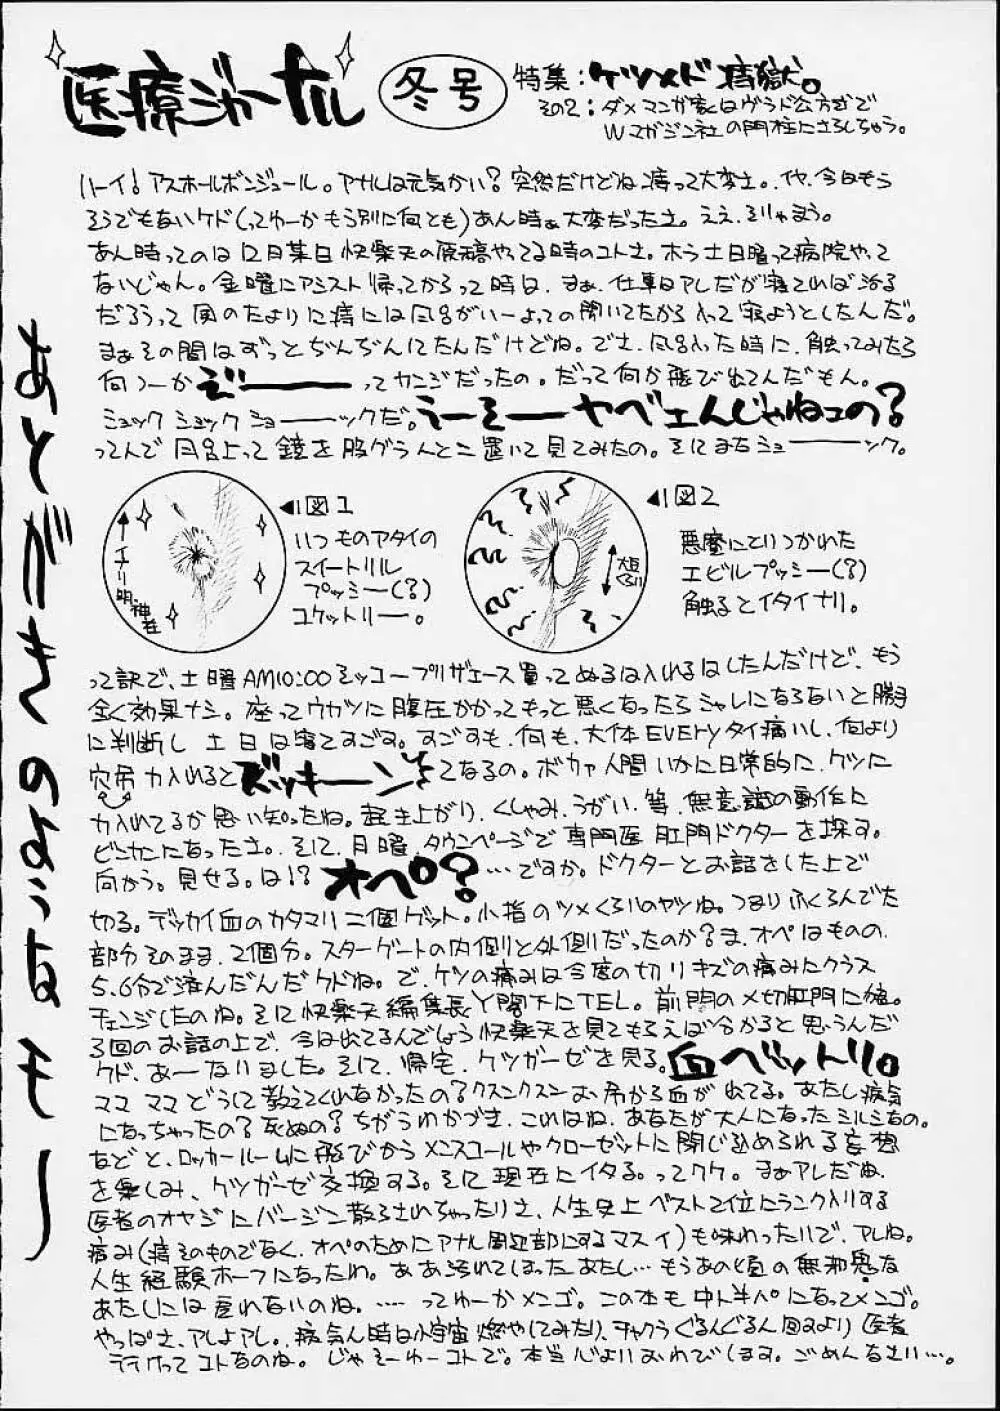 医療ジャーナル 冬号 特集：ケツメド痔獄。
その2：ダメマンガ家はヴラド公方式で
Wマガジン社の門柱にさらしちゃう。
ハーイ！アスホールボンジュール。アナルは元気かい？突然だけどね痔って大変さ。イヤ、今日もう
そうでもないケド(ってゆーかもう別に何とも)あん時ぁ大変だったさ。ええ、そりゃもう。
あん時ってのは12月某日快楽天の原稿やってる時のコトさ。ホラ土日曜って病院やって
ないじゃん。金曜にアシスト帰ってからって時は、まぁ、仕事はアレだが寝てれば治る
だろうって風のたよりに痔には風呂がいーよっての聞いてたから入って寝ようとしたんだ。
まぁその間はずっとぢんぢんしてたんだけどね。でさ、風呂入った時に、触ってみたら
何つーかぞーーーってカンジだったの。だって何か飛び出てんだもん。
ショック ショック ショーーックだ。うーそーヤベェんじゃねェの？
ってんで風呂上って鏡を股グラんとこ置いて見てみたの。そしたらショーーーック。
◀図1
いつものアタイの
スイートリル
プッシー(？)
コケットリー。
◀図2
悪魔にとりつかれた
エビルプッシー(？)
触るとイタイナリ。
大豆ぐらい
って訳で、土曜AM10:00ミッコープリザエース買ってぬるは入れるはしたんだけど、もう
全く効果ナシ。座ってウカツに腹圧かかってもっと悪くなったらシャレにならないと勝手
に判断し土日は寝てすごす。すごすも、何も、大体EVERYタイ痛いし、何より
穴吊力入れるとズッキーンてなるの。ボカァ人間いかに日常的に、ケツに
力入れてるか思い知ったね。起き上がり、くしゃみ、うがい、等、無意識の動作に
ビンカンになったさ。そして、月曜、タウンページで専門医肛門ドクターを探す。
向かう。見せる。は！？オペ？…ですか。ドクターとお話をした上で
切る。デッカイ血のカタマリ二個ゲット。小指のツメくらいのヤツね。つまりふくらんでた
部分そのまま、2個分。スターゲートの内側と外側だったのか？ま、オペはものの、
5、6分で済んだんだケドね。で、ケツの痛みは今度の切りキズの痛みにクラス
チェンジしたのね。そして快楽天編集長Y閣下にTEL。前門の〆切肛門に狼。
3回のお話の上で、今は出てるんでしょう快楽天を見てもらえば分かると思うんだ
ケド、あーなりました。そして、帰宅、ケツガーゼを見る。血ベットリ。
ママ ママ どうして教えてくれなかったの？クスンクスン お帛から血が出てる。あたし病気
になっちゃったの？死ぬの？ちがうわかづき、これはね、あなたが大人になったシルシなの。
などと、ロッカールームに飛びかうメンスコールやクローゼットに閉じ込められる妄想
を楽しみ、ケツガーゼ交換する。そして現在にイタる。ってワケ。まぁアレだね、
医者のオヤジにバージン散らされちゃったりさ、人生史上ベスト2位にランク入りする
痛み(痔そのものでなく、オペのためにアナル周辺部にするマスイ)も味わったりで、アレね。
人生経験ホーフになったわ。ああ汚れてしまったあたし…もうあの頃の無邪鬼な
あたしには戻れないのね。……ってゆーかメンゴ。この本も中ト半パになってメンゴ。
やっぱさ、アレよアレ。病気ん時は小宇宙燃やしてみたり、チャクラぐるんぐるん回すより医者
行けってコトなのね。じゃそーゆーコトで。本当心よりおわびします。ごめんなさい…。
あとがきのようなモノ